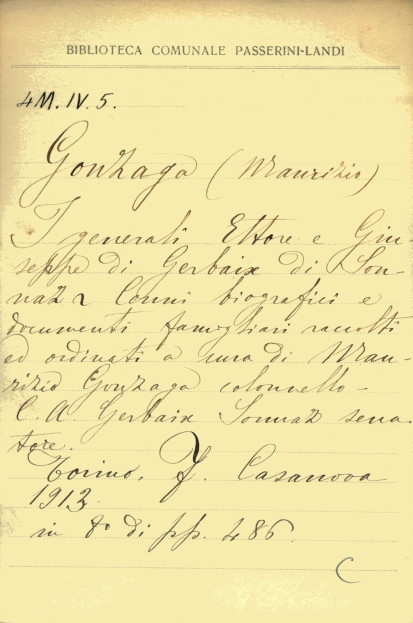 BIBLIOTECA COMUNALE PASSERINI-LANDI
4M.IV.5.
Gonzaga (Maurizio)
I generali Ettore e Giu-
seppe di Gerbaix di Son-
naz Cenni biografici e
documenti famigliari raccolti
ed ordinati a cura di Mau-
rizio Gonzaga colonnello-
C. A. Gerbaix Sonnaz sena-
tore.
Torino, F. Casanova
1912
in 8º di pp. 486.
C